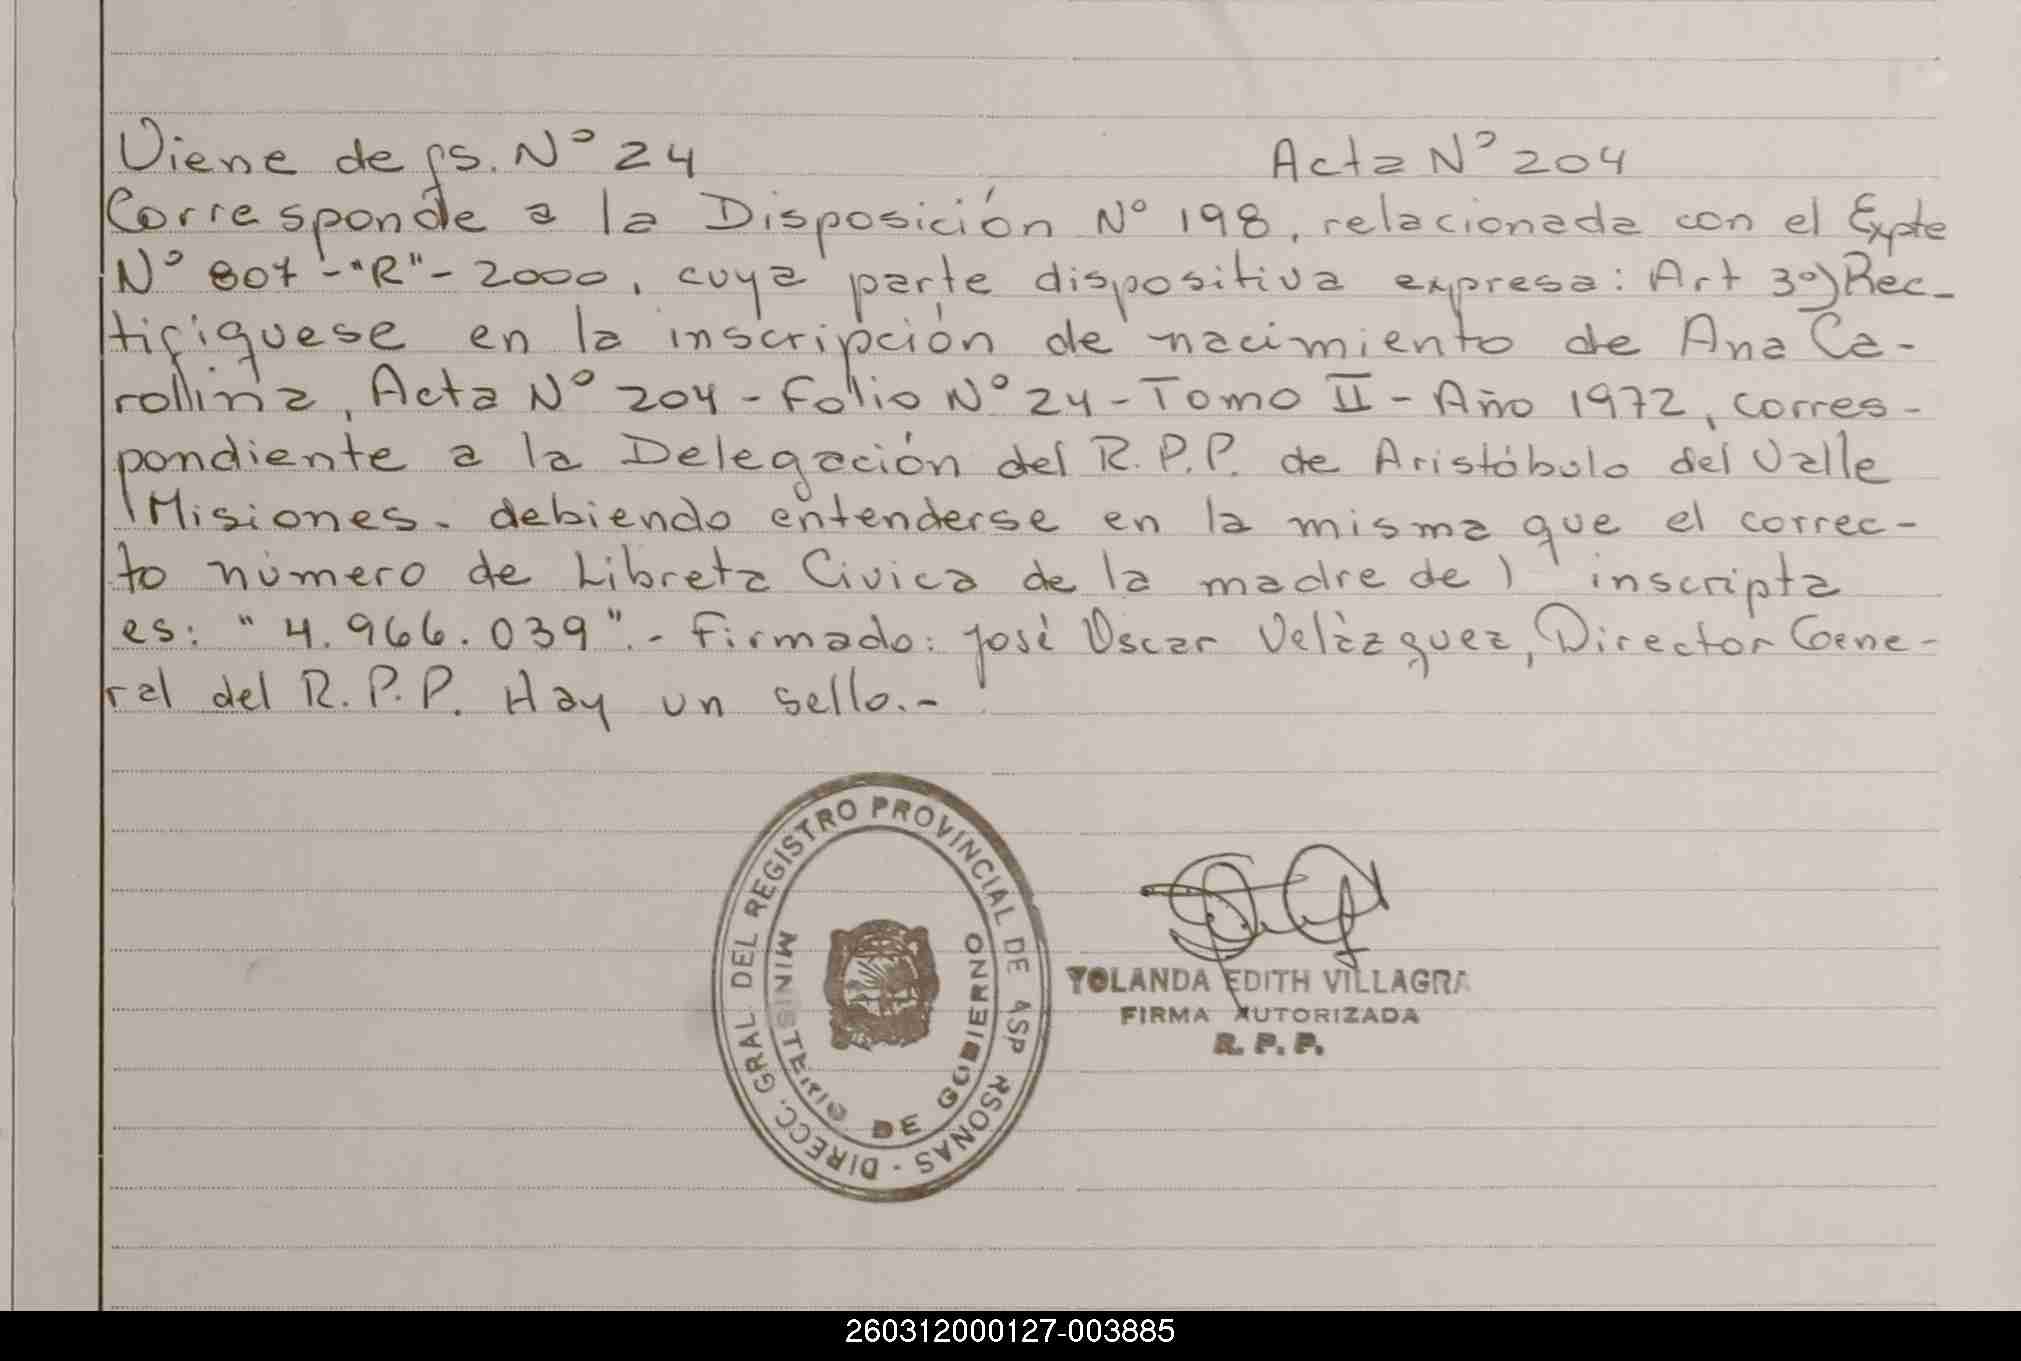 Viene de fs. Nº 24 Acta Nº 204
Corresponde a la Disposición Nº 198, relacionada con el Expte
Nº 807-"R"-2000, cuya parte dispositiva expresa: Art 3º) Rec-
tifíquese en la inscripción de nacimiento de Ana Ca-
rollina, Acta Nº 204 - Folio Nº 24 - Tomo II - Año 1972, corres-
pondiente a la Delegación del R.P.P. de Aristóbulo del Valle
Misiones. debiendo entenderse en la misma que el correc-
to número de Libreta Cívica de la madre de l inscripta
es: "4.966.039".- Firmado: José Oscar Velázquez, Director Gene-
ral del R.P.P. Hay un sello.-
DIRECC. GRAL DEL REGISTRO PROVINCIAL DE ASP RSONAS -
MINISTERIO DE GOBIERNO
YOLANDA EDITH VILLAGRA
FIRMA AUTORIZADA
R. P. P.
260312000127-003885